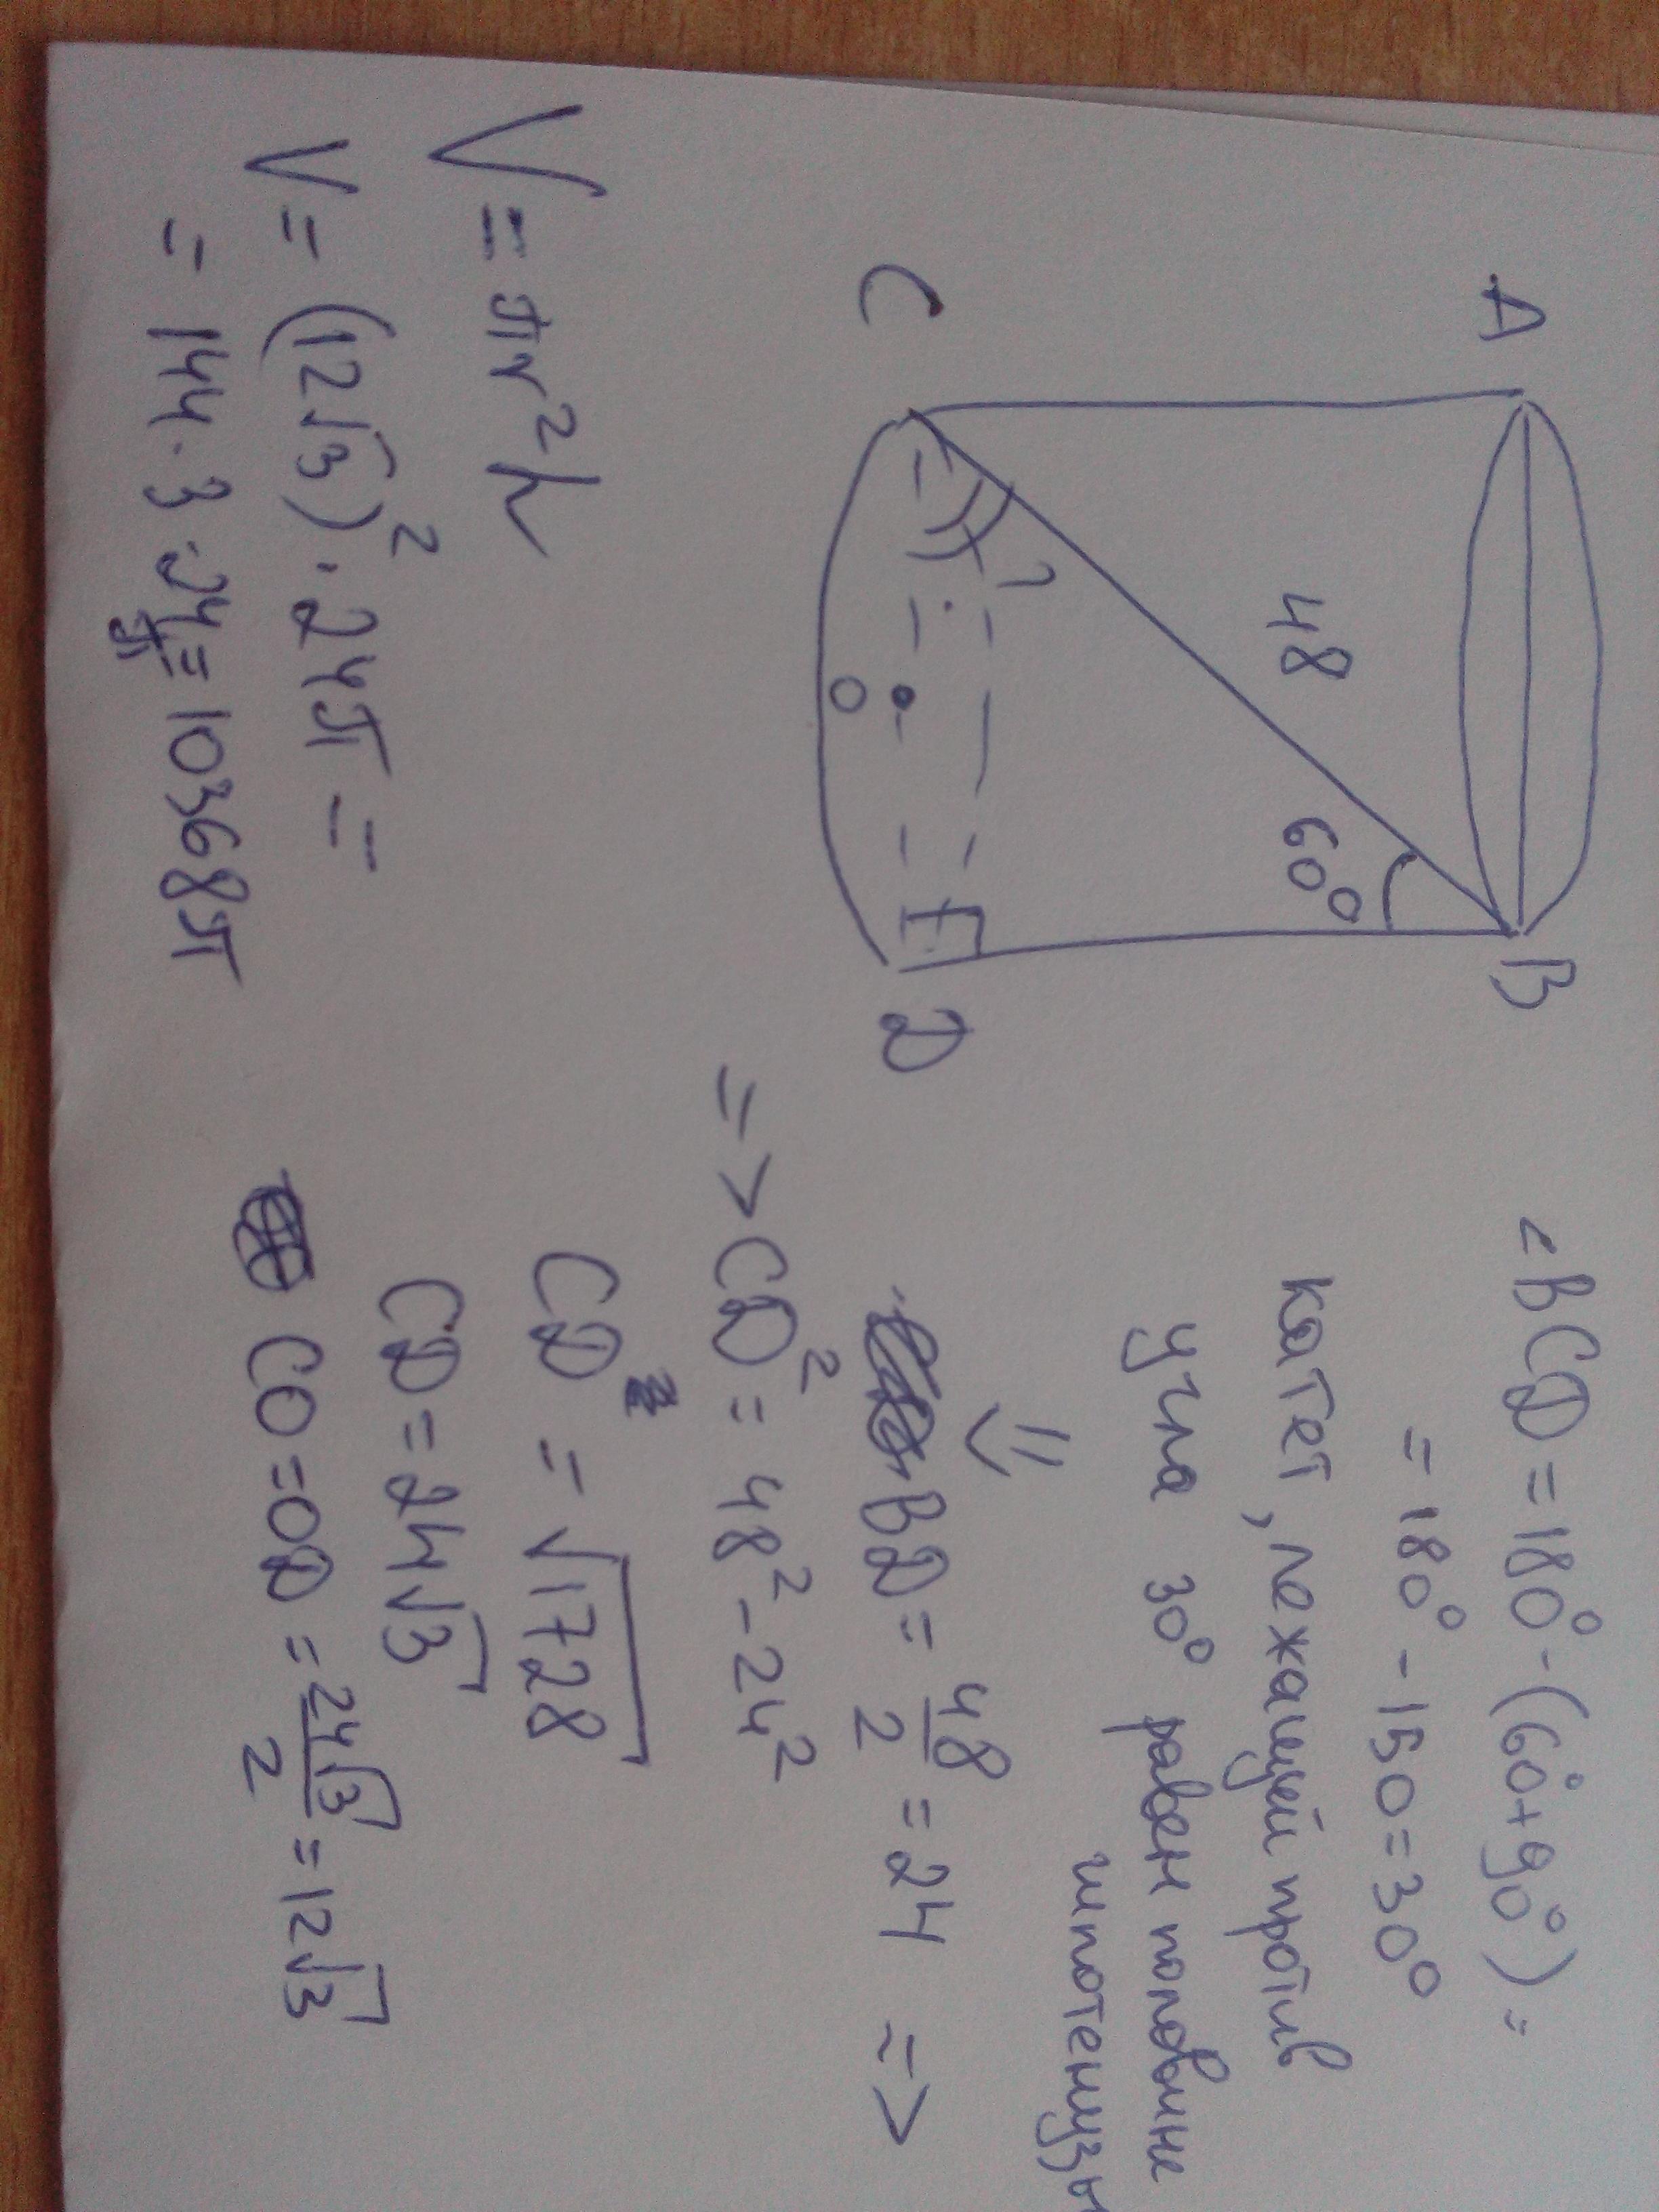 A
B
48
60°
?
C
O
D
<BCD = 180° - (60° + 90°) =
= 180° - 150 = 30°
катет, лежащей против
угла 30° равен половине
гипотенузы
⇓
BD = 48/2 = 24 =>
=> CD² = 48² - 24²
CD = √1728
CD = 24√3
CO = OD = 24√3/2 = 12√3
V = πr²h
V = (12√3)² · 24π =
= 144 · 3 · 24π = 10368π